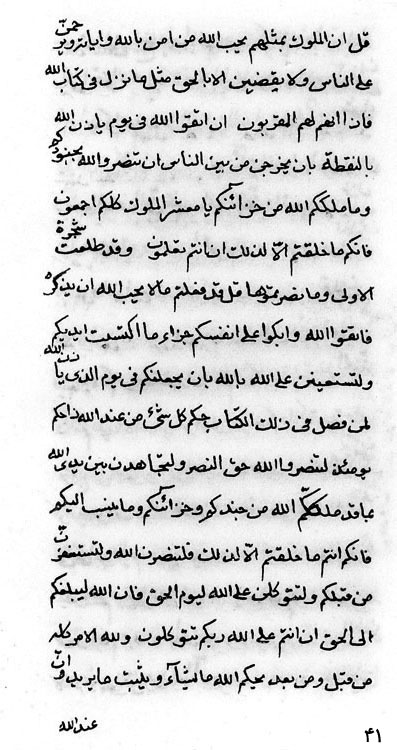 قل ان الملوك بمثلهم يحب الله من امن بالله واياته ويرحمن
على الناس ولا يقضين الا بالحق مثل ما نزل فى كتاب الله
فان اولئك لهم المقربون ان اتقوا الله فى يوم ياذن الله
بالنقطة بان يخرجن من بين الناس ان تنصروا الله بجنودكم
وما ملككم الله من خزائنكم يا معشر الملوك كلكم اجمعون
فانكم ما خلقتم الا لذلك ان انتم تعلمون وقد طلعت شجرة
الاولى وما نصرتموها قل قد فعلتم ما لا يحب الله ان يذكره
فاتقوا الله وابكوا على انفسكم جزاء ما اكتسبت ايديكم
ولتستعينن على الله بالله بان يجعلنكم فى يوم الذى ياتين الله
لمن فصل فى ذلك الكتاب حكم كل شئ من عند الله ذا حكم
يومئذ لتنصروا الله حق النصر ولتجاهدن بين يدى الله
بما قد ملككم الله من جندكم وخزائنكم وما ينسب اليكم
فانكم انتم ما خلقتم الا لذلك فلتنصرن الله ولتستغفرن
من قبلكم ولتتوكلن على الله ليوم الحق فان الله ليبلغكم
الى الحق ان انتم على الله ربكم تتوكلون ولله الامر كله
من قبل ومن بعد يمحيكم الله ما يشآء ويثبت ما يريد وان
عند الله
۴۱